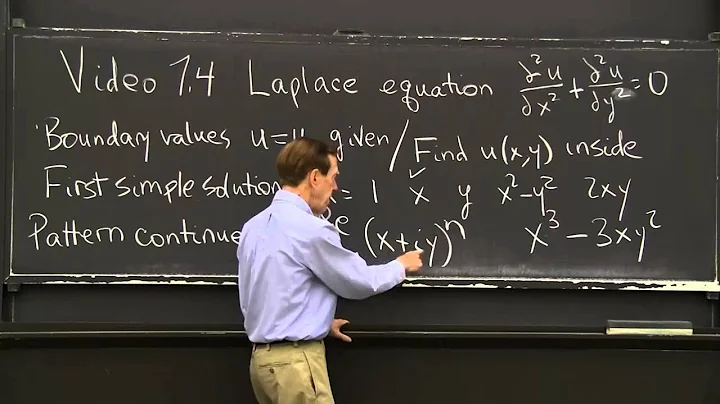 Video 7.4 Laplace equation ∂²u/∂x² + ∂²u/∂y² = 0
Boundary values u=u given / Find u(x,y) inside
First simple solution = 1 x y x²-y² 2xy
Pattern continue (x+iy)ⁿ x³-3xy²